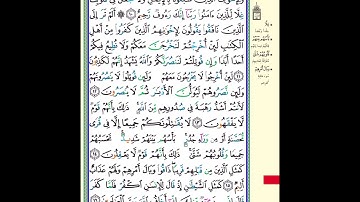 غِلًّا لِّلَّذِينَ ءَامَنُوا۟ رَبَّنَآ إِنَّكَ رَءُوفٌ رَّحِيمٌ ۝١٠ أَلَمْ تَرَ إِلَى
ٱلَّذِينَ نَافَقُوا۟ يَقُولُونَ لِإِخْوَٰنِهِمُ ٱلَّذِينَ كَفَرُوا۟ مِنْ أَهْلِ
ٱلْكِتَٰبِ لَئِنْ أُخْرِجْتُمْ لَنَخْرُجَنَّ مَعَكُمْ وَلَا نُطِيعُ فِيكُمْ
أَحَدًا أَبَدًا وَإِن قُوتِلْتُمْ لَنَنصُرَنَّكُمْ وَٱللَّهُ يَشْهَدُ إِنَّهُمْ لَكَٰذِبُونَ
۝١١ لَئِنْ أُخْرِجُوا۟ لَا يَخْرُجُونَ مَعَهُمْ وَلَئِن قُوتِلُوا۟ لَا يَنصُرُونَهُمْ
وَلَئِن نَّصَرُوهُمْ لَيُوَلُّنَّ ٱلْأَدْبَٰرَ ثُمَّ لَا يُنصَرُونَ ۝١٢
لَأَنتُمْ أَشَدُّ رَهْبَةً فِى صُدُورِهِم مِّنَ ٱللَّهِ ذَٰلِكَ بِأَنَّهُمْ قَوْمٌ
لَّا يَفْقَهُونَ ۝١٣ لَا يُقَٰتِلُونَكُمْ جَمِيعًا إِلَّا فِى قُرًى
مُّحَصَّنَةٍ أَوْ مِن وَرَآءِ جُدُرٍۭ بَأْسُهُم بَيْنَهُمْ شَدِيدٌ تَحْسَبُهُمْ
جَمِيعًا وَقُلُوبُهُمْ شَتَّىٰ ذَٰلِكَ بِأَنَّهُمْ قَوْمٌ لَّا يَعْقِلُونَ ۝١٤
كَمَثَلِ ٱلَّذِينَ مِن قَبْلِهِمْ قَرِيبًا ذَاقُوا۟ وَبَالَ أَمْرِهِمْ وَلَهُمْ عَذَابٌ
أَلِيمٌ ۝١٥ كَمَثَلِ ٱلشَّيْطَٰنِ إِذْ قَالَ لِلْإِنسَٰنِ ٱكْفُرْ فَلَمَّا كَفَرَ